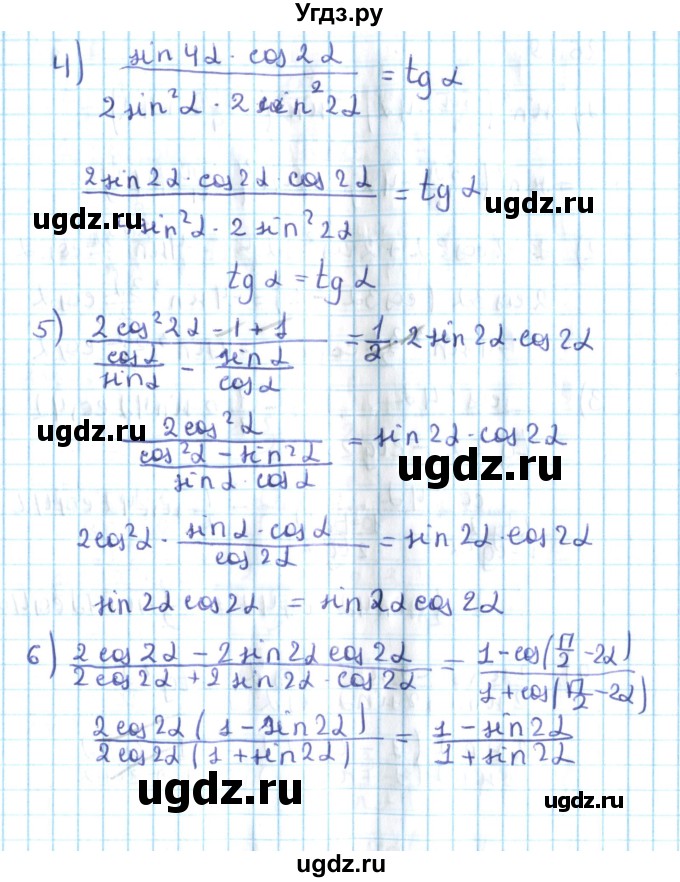 Угдз.ру
4) (sin 4α · cos 2α)/(2 sin²α · 2 sin² 2α) = tg α
(2 sin 2α · cos 2α · cos 2α)/(sin²α · 2 sin² 2α) = tg α
ugdz.ru ugdz.ru
tg α = tg α
5) (2 cos² 2α - 1 + 1)/(cos α/sin α - sin α/cos α) = 1/2 · 2 sin 2α · cos 2α
ugdz.ru
(2 cos² α)/((cos²α - sin²α)/(sin α · cos α)) = sin 2α · cos 2α
ugdz.ru
2 cos²α · (sin α · cos α)/(cos 2α) = sin 2α · cos 2α
sin 2α cos 2α = sin 2α cos 2α
6) (2 cos 2α - 2 sin 2α cos 2α)/(2 cos 2α + 2 sin 2α · cos 2α) = (1 - cos(π/2 - 2α))/(1 + cos(π/2 - 2α))
(2 cos 2α (1 - sin 2α))/(2 cos 2α (1 + sin 2α)) = (1 - sin 2α)/(1 + sin 2α)
ugdz.ru ugdz.ru
ugdz.ru